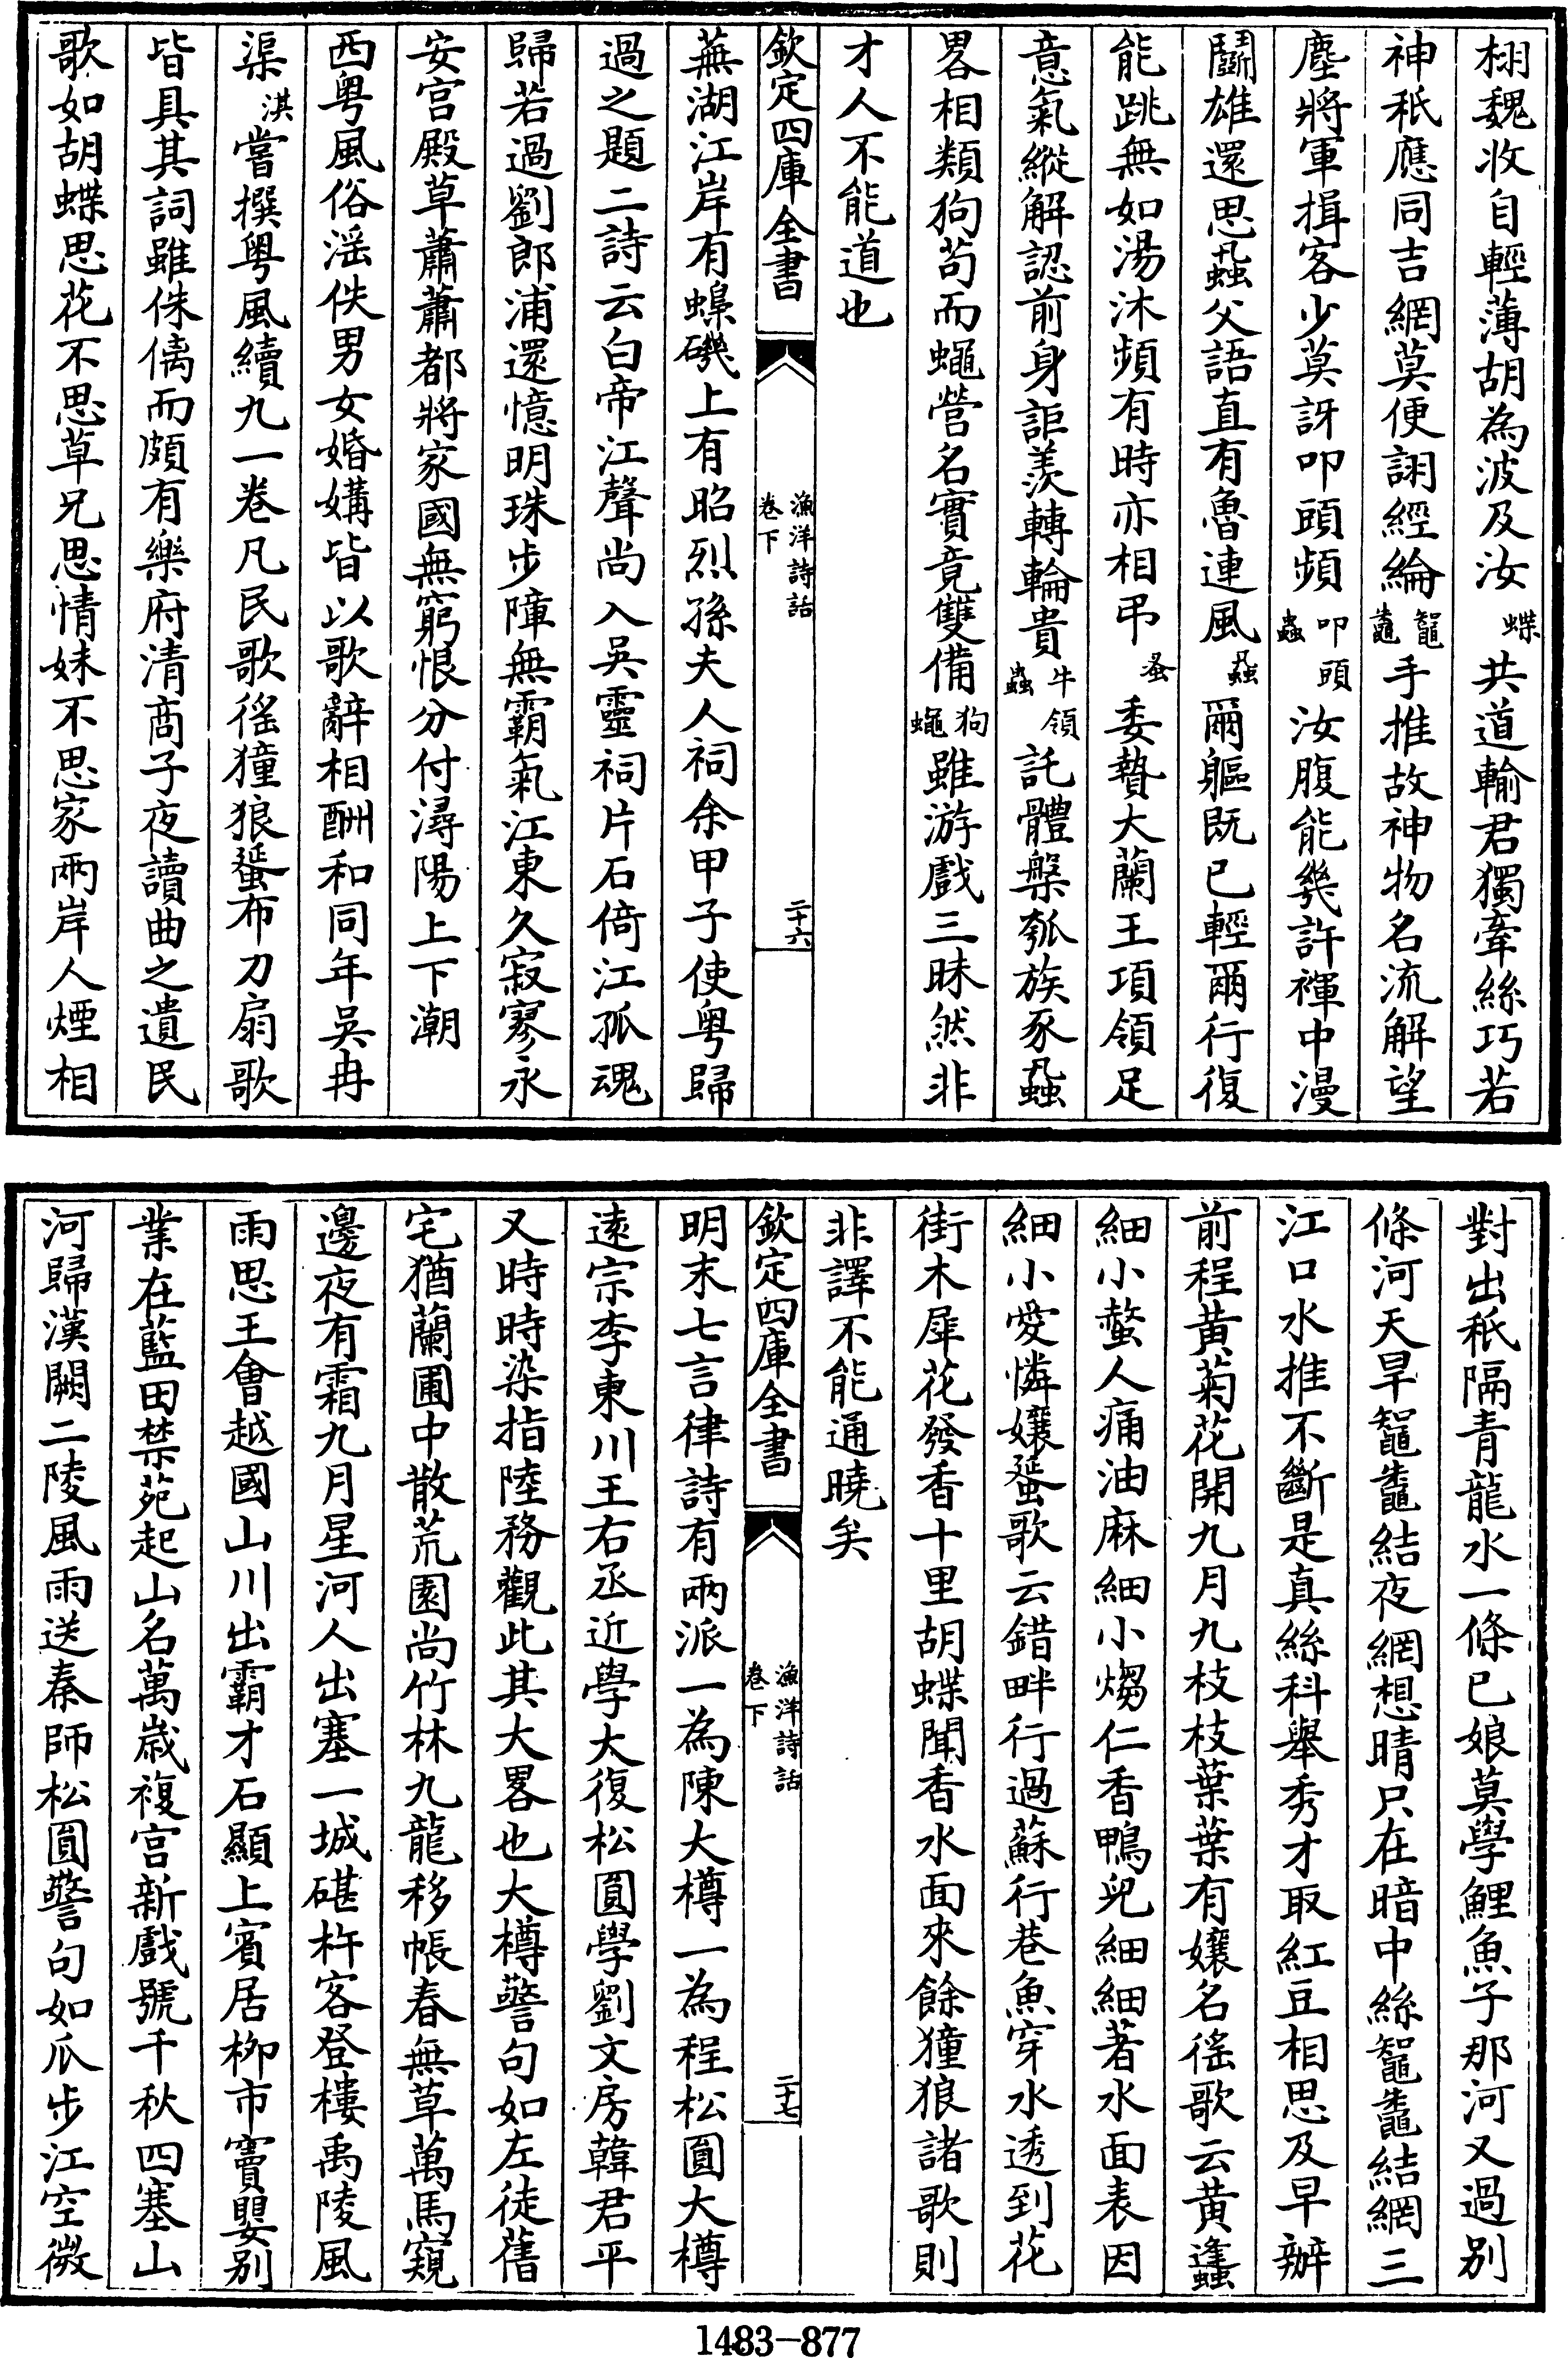 栩魏收自輕薄胡為波及汝蝶共道輸君獨牽絲巧若
神秪應同吉網莫便詡經綸鼅鼄手推故神物名流解望
塵將軍揖客少莫訝叩頭頻叩頭蟲汝腹能幾許褌中漫
鬬雄還思蝨父語直有魯連風蝨爾軀旣已輕爾行復
能跳無如湯沐頻有時亦相弔蚤委贄大蘭王項領足
意氣縱解認前身詎羨轉輪貴牛領蟲託體槃瓠族豕蝨
畧相類狗茍而蠅營名實竟雙備狗蠅雖游戲三昧然非
才人不能道也
欽定四庫全書
漁洋詩話
卷下
二十六
蕪湖江岸有蟂磯上有昭烈孫夫人祠余甲子使粤歸
過之題二詩云白帝江聲尚入吳靈祠片石倚江孤魂
歸若過劉郎浦還憶明珠步障無霸氣江東久寂寥永
安宫殿草蕭蕭都將家國無窮恨分付潯陽上下潮
西粤風俗滛佚男女婚媾皆以歌辭相酬和同年吳冉
渠淇嘗撰粤風續九一卷凡民歌徭獞狼蜑布刀扇歌
皆具其詞雖侏㒧而頗有樂府清商子夜讀曲之遺民
歌如胡蝶思花不思草兄思情妹不思家兩岸人煙相
對出秪隔青龍水一條已娘莫學鯉魚子那河又過别
條河天旱鼅鼄結夜網想晴只在暗中絲鼅鼄結網三
江口水推不斷是真絲科舉秀才取紅豆相思及早辦
前程黄菊花開九月九枝枝葉葉有孃名徭歌云黄蠭
細小螫人痛油麻細小煼仁香鴨兒細細著水面表因
細小愛憐孃蜑歌云錯畔行過蘇行巷魚穿水透到花
街木犀花發香十里胡蝶聞香水面來餘獞狼諸歌則
非譯不能通曉矣
欽定四庫全書
漁洋詩話
卷下
二十七
明末七言律詩有兩派一為陳大樽一為程松圓大樽
遠宗李東川王右丞近學大復松圓學劉文房韓君平
又時時染指陸務觀此其大畧也大樽警句如左徒舊
宅猶蘭圃中散荒園尚竹林九龍移帳春無草萬馬窺
邊夜有霜九月星河人出塞一城碪杵客登樓禹陵風
雨思王會越國山川出霸才石顯上賓居栁市竇嬰别
業在藍田禁苑起山名萬歲複宫新戲號千秋四塞山
河歸漢闕二陵風雨送秦師松圓警句如瓜步江空微
1483-877